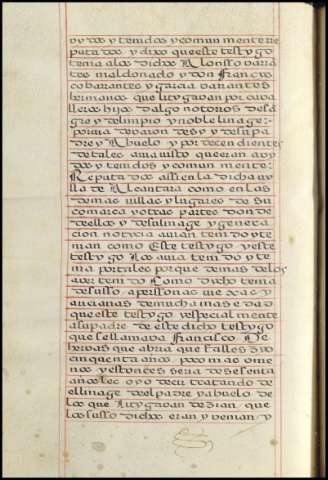 vydos y tenidos y comunmente rre
putados y dixo que este testygo
tenia a los dichos Alonsso baran
tes maldonado y don Francis
co barantes y garcia barantes
hermanos que lityagavan por cava
lleros hijos dalgo notorios de sa
gre y de linpio y noble linage:-
por via de varon de sy y de su pa
dre y Abuelo y por decendientes
de tales avia visto que eran avy
dos y tenidos y comun mente:-
Reputados assi en la dicha vy
lla de Alcantara como en las
demas villas y lugares de su
comarca y otras partes donde
de ellos y de su linage y generacion
notycia avian tenido y te
nian como Este testygo y este
testygo los avia tenido y te
nia por tales porque demas de los
aver tenido Como dicho tenia
de suso a perssonas viejas y
ancianas de mucha mas edad
que este testygo y especialmente
a su padre de este dicho testygo
que se llamava Francisco De
hervas que abria que fallescio
cinquenta años poco mas o me
nos y estonces seria de sesenta
años les oyo decir tratando de
el linage de el padre y abuelo de
los que lityagavan dezian que
los susso dichos eran y venian y